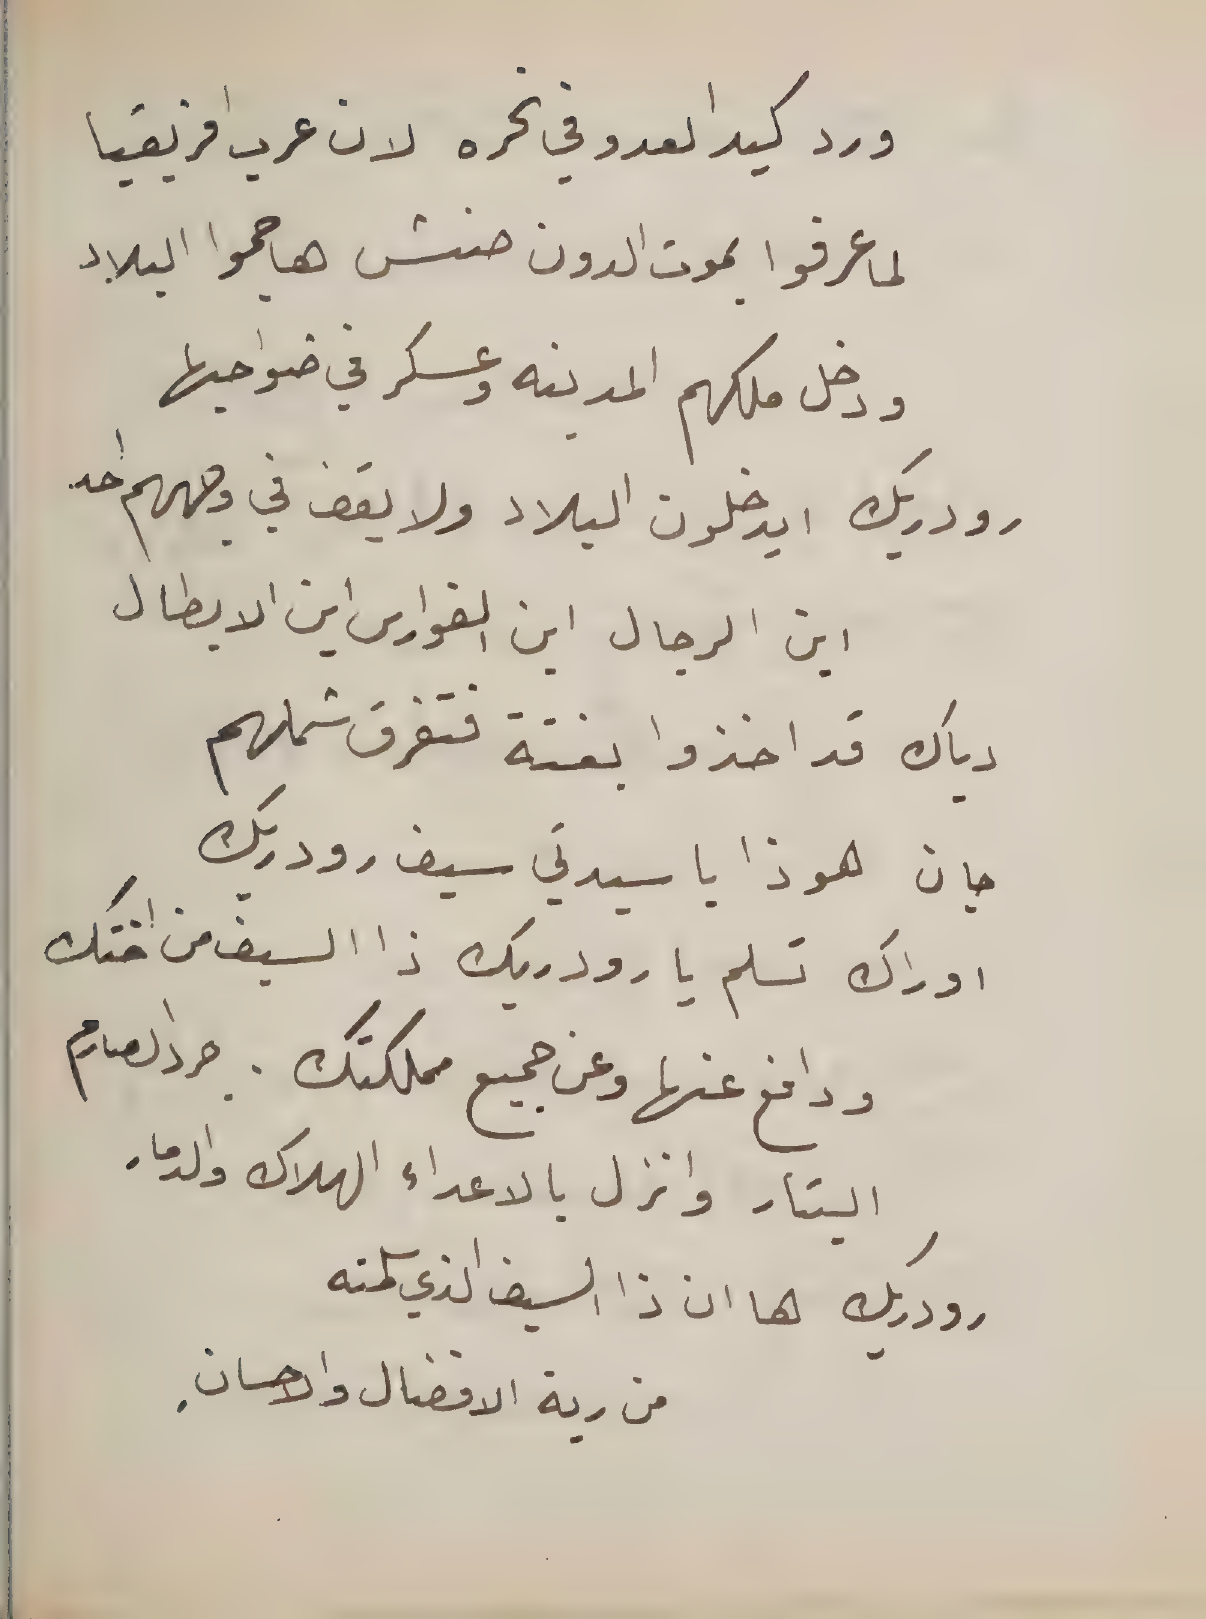 ورد كيد العدو في نحره لان عرب افريقيا
لما عرفوا بموت الدون صنتش هاجموا البلاد
ودخل ملكهم المدينه وعسكر في ضواحيها
رودريك ايدخلون البلاد ولا يقف في وجههم احد.
اين الرجال اين الفوارس اين الابطال
دياك قد اخذوا بغتة فتفرق شملهم
جان هوذا يا سيدتي سيف رودريك
اوراك تسلم يا رودريك ذا السيف من اختك
ودافع عنها وعن جميع مملكتك . جرد الصارم
البتار وانزل بالاعداء الهلاك والدمار
رودريك ها ان ذا السيف الذي
من ربة الافضال والاحسان.